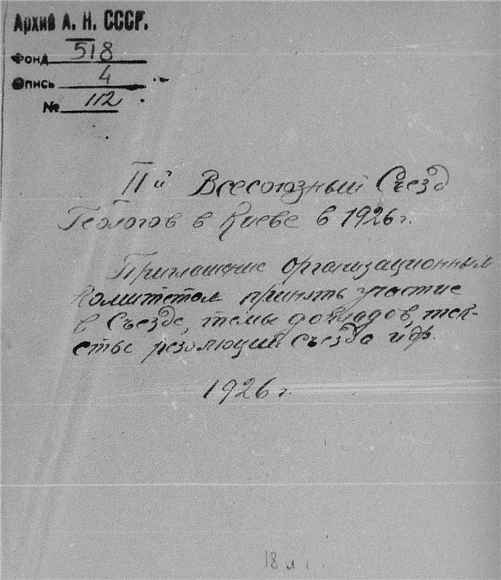 Архив А. Н. СССР.
Фонд 518
Опись 4
№ 112
IIй Всесоюзный Съезд
Геологов в Киеве в 1926 г.
Приглашение организационным
комитетом принять участие
в Съезде, темы докладов, тек-
сты резолюций съезда и др.
1926 г.
18 л